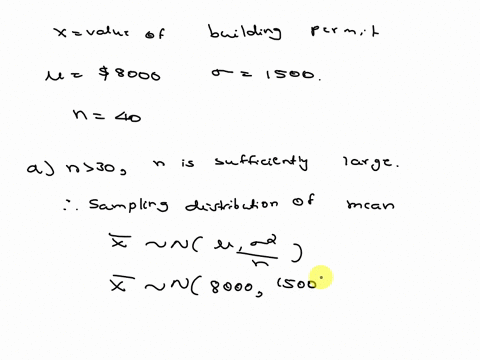 x = value of building permit
μ = $8000 σ = 1500.
n = 40
a) n>30, n is sufficiently large.
∴ sampling distribution of mean
x̄ ~ N( μ, σ²/n )
x̄ ~ N( 8000, 1500